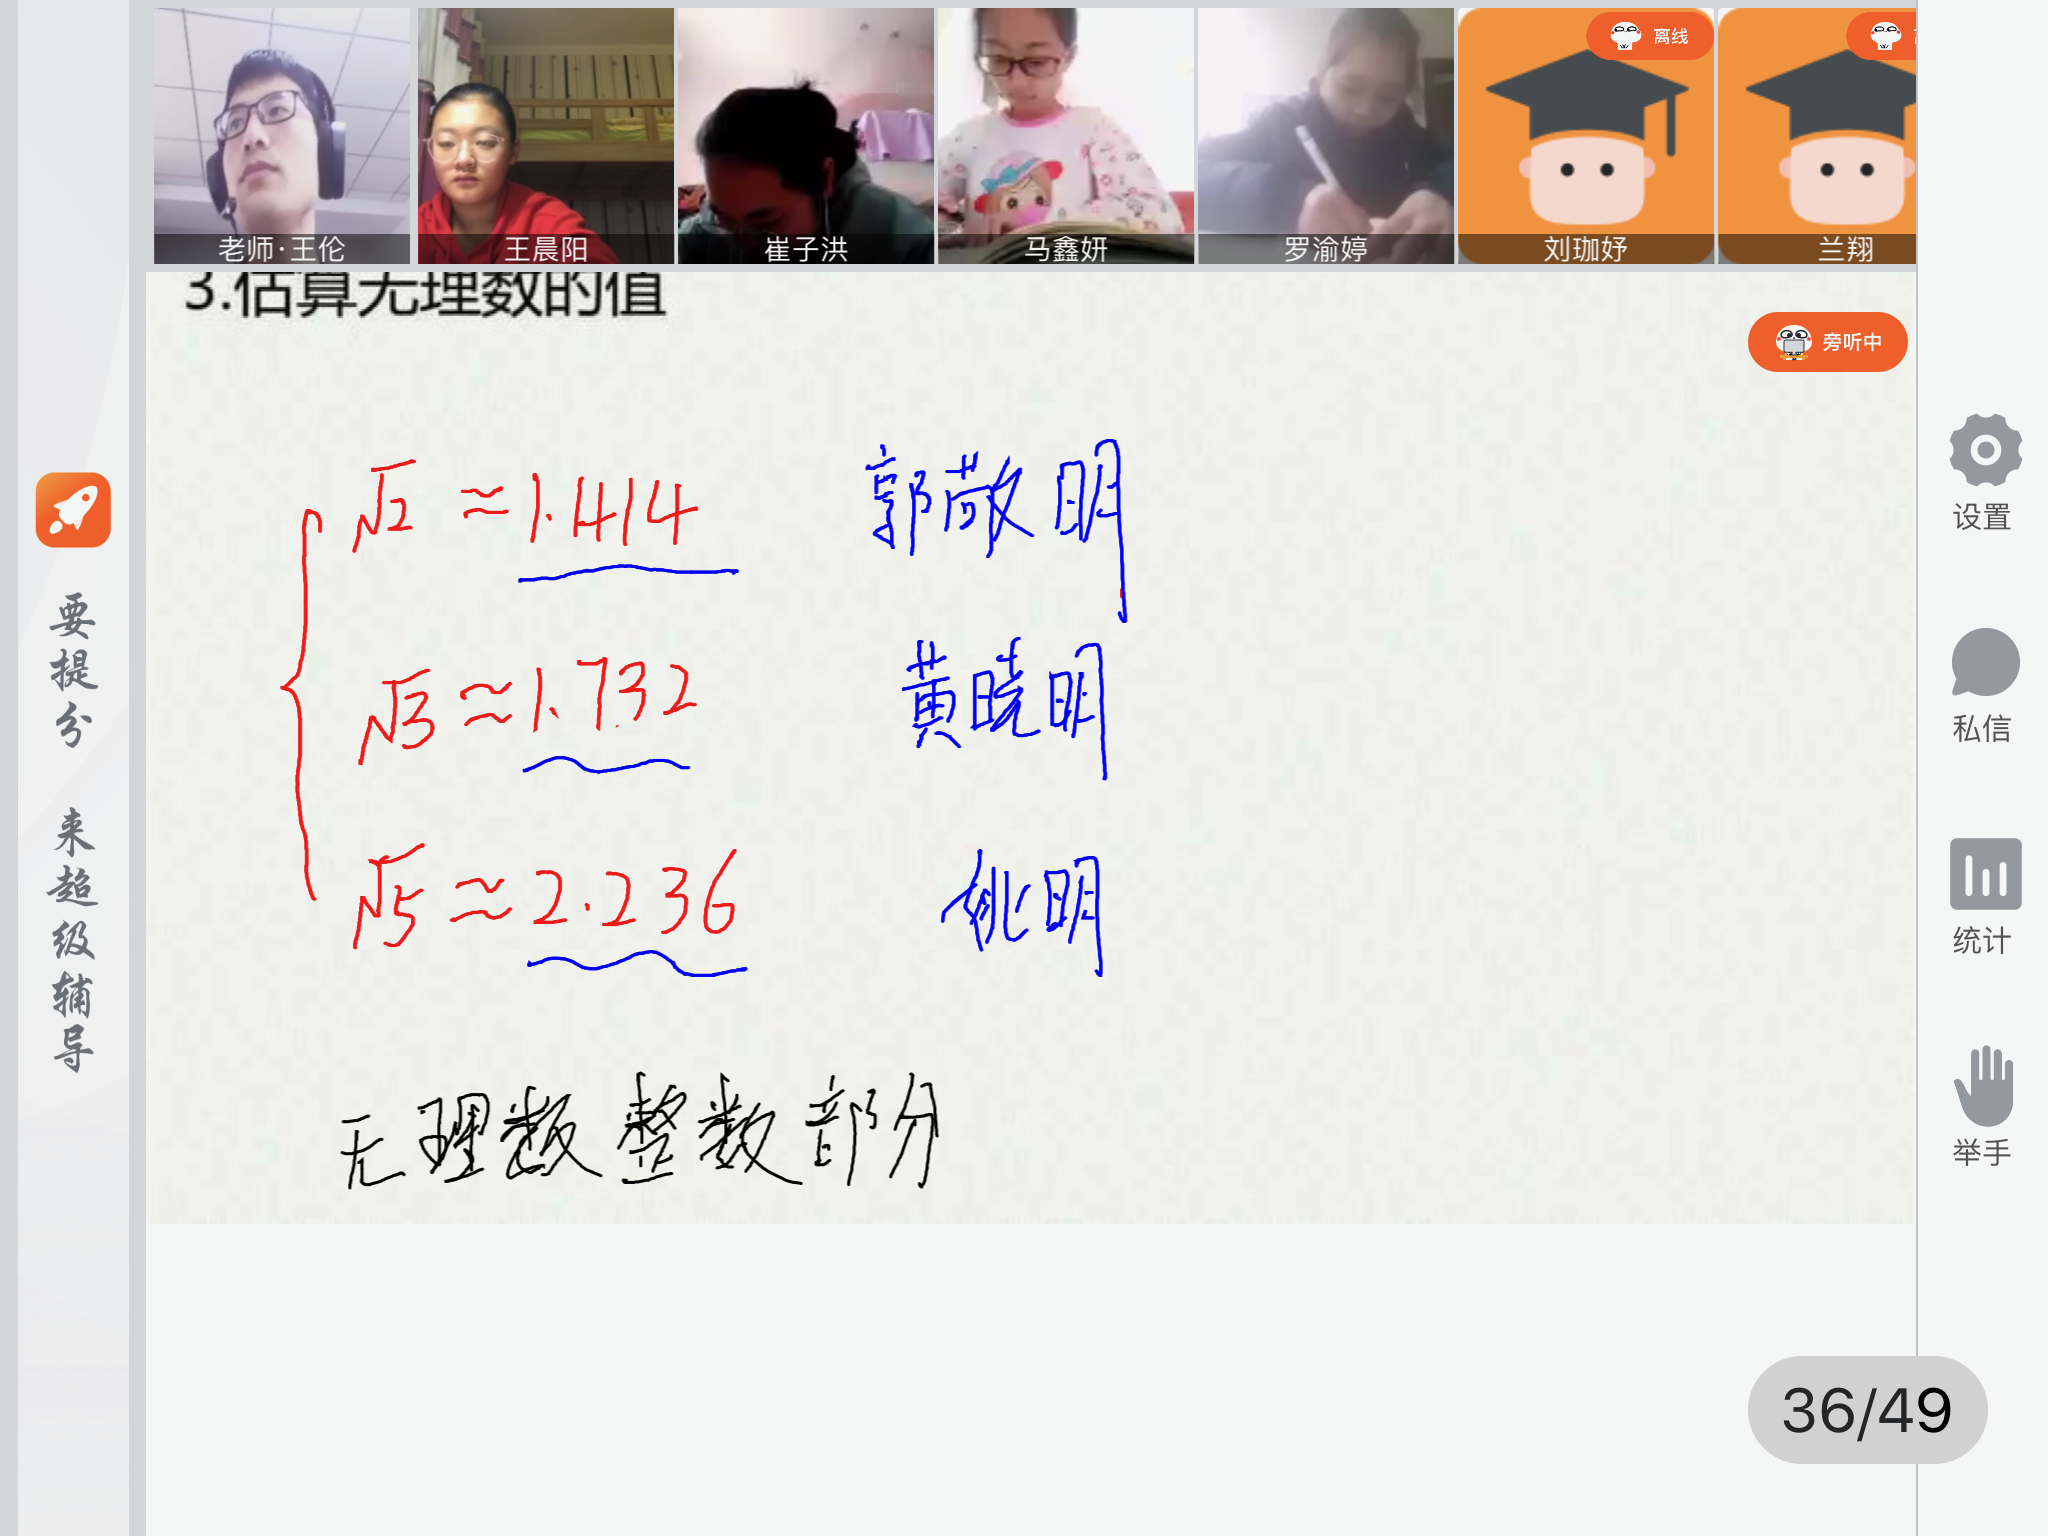 老师·王伦
王晨阳
崔子洪
马鑫妍
罗渝婷
离线
刘珈妤
兰翔
3.估算无理数的值
旁听中
√2 ≈ 1.414 郭敬明
√3 ≈ 1.732 黄晓明
√5 ≈ 2.236 姚明
无理数整数部分
要提分 来超级辅导
设置
私信
统计
举手
36/49